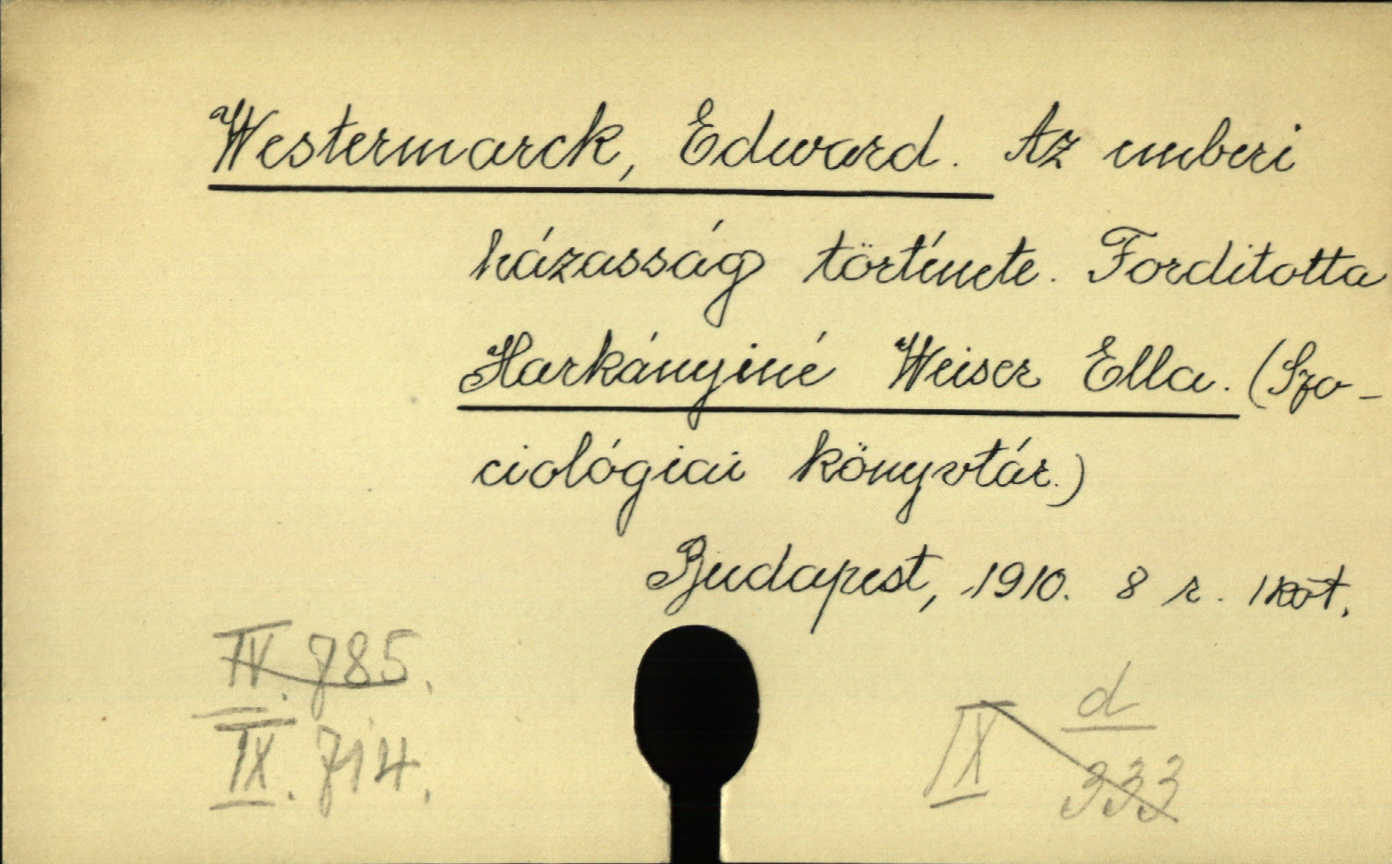 Westermarck, Edward. Az emberi
házasság története. Forditotta
Harkányiné Weiser Ella. (Szo-
ciológiai könyvtár.)
Budapest, 1910. 8 r. 1 köt.
IV. 785.
IX. 714.
IX d
333